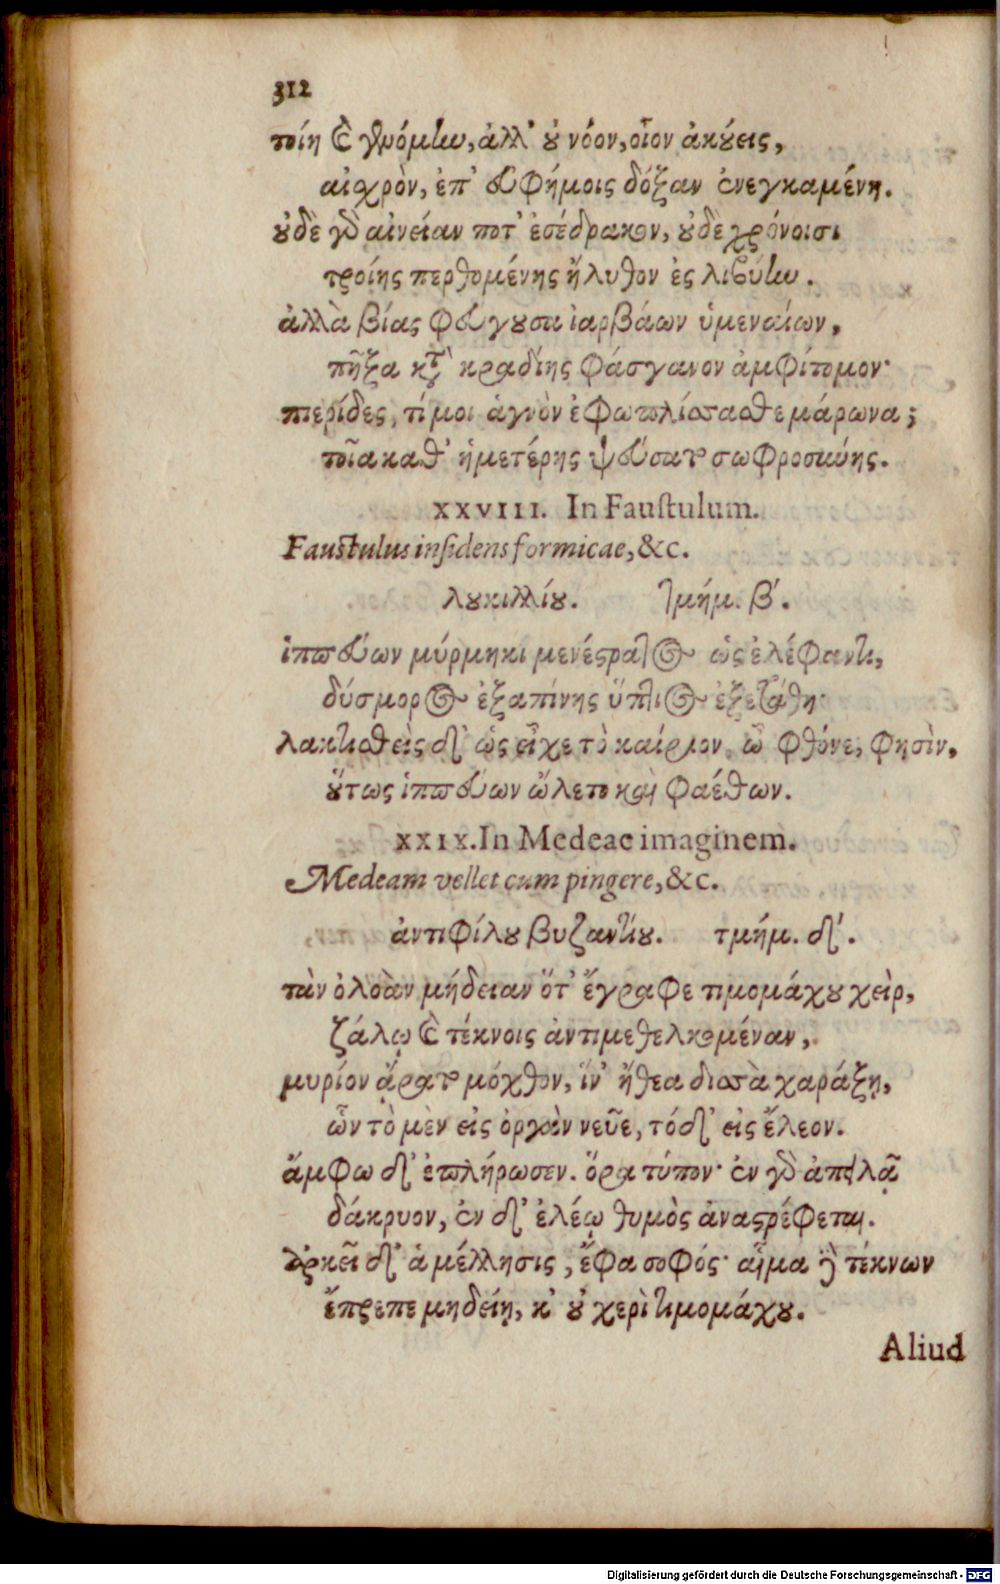 312
τοίη καὶ γενόμην, ἀλλ' οὐ νόον, οἷον ἀκούεις,
αἰσχρὸν, ἐπ' εὐφήμοις δόξαν ἐνεγκαμένη.
οὐδὲ γὰρ αἰνείαν ποτ' ἐσέδρακον, οὐδὲ χρόνοισι
τροίης περθομένης ἤλυθον ἐς λιβύην.
ἀλλὰ βίας φεύγουσα ἰαρβάων ὑμεναίων,
πῆξα κατὰ κραδίης φάσγανον ἀμφίτομον·
πιερίδες, τί μοι ἁγνὸν ἐφωπλίσσασθε μάρωνα;
τοῖα καθ' ἡμετέρης ψεύσατο σωφροσύνης.
XXVIII. In Faustulum.
Faustulus insidens formicae, &c.
λουκιλλίου. τμήμ. β'.
ἱππεύων μύρμηκι μενέστρατος ὡς ἐλέφαντι,
δύσμορος ἐξαπίνης ὕπτιος ἐξετάθη·
λακτισθεὶς δ' ὡς εἶχε τὸ καίριον, ὦ φθόνε, φησὶν,
οὕτως ἱππεύων ὤλετο καὶ φαέθων.
XXIX. In Medeae imaginem.
Medeam vellet cum pingere, &c.
ἀντιφίλου βυζαντίου. τμήμ. δ'.
τὰν ὀλοὰν μήδειαν ὅτ' ἔγραφε τιμομάχου χεὶρ,
ζάλῳ καὶ τέκνοις ἀντιμεθελκομέναν,
μυρίον ἄρατο μόχθον, ἵν' ἤθεα δισσὰ χαράξῃ,
ὧν τὸ μὲν εἰς ὀργὰν νεῦε, τὸ δ' εἰς ἔλεον.
ἄμφω δ' ἐπλήρωσεν. ὅρα τύπον· ἐν γὰρ ἀπειλᾷ
δάκρυον, ἐν δ' ἐλέῳ θυμὸς ἀναστρέφεται.
ἀρκεῖ δ' ἁ μέλλησις, ἔφα σοφός· αἷμα δὲ τέκνων
ἔπρεπε μηδείῃ, κ' οὐ χερὶ τιμομάχου.
Aliud
Digitalisierung gefördert durch die Deutsche Forschungsgemeinschaft - DFG